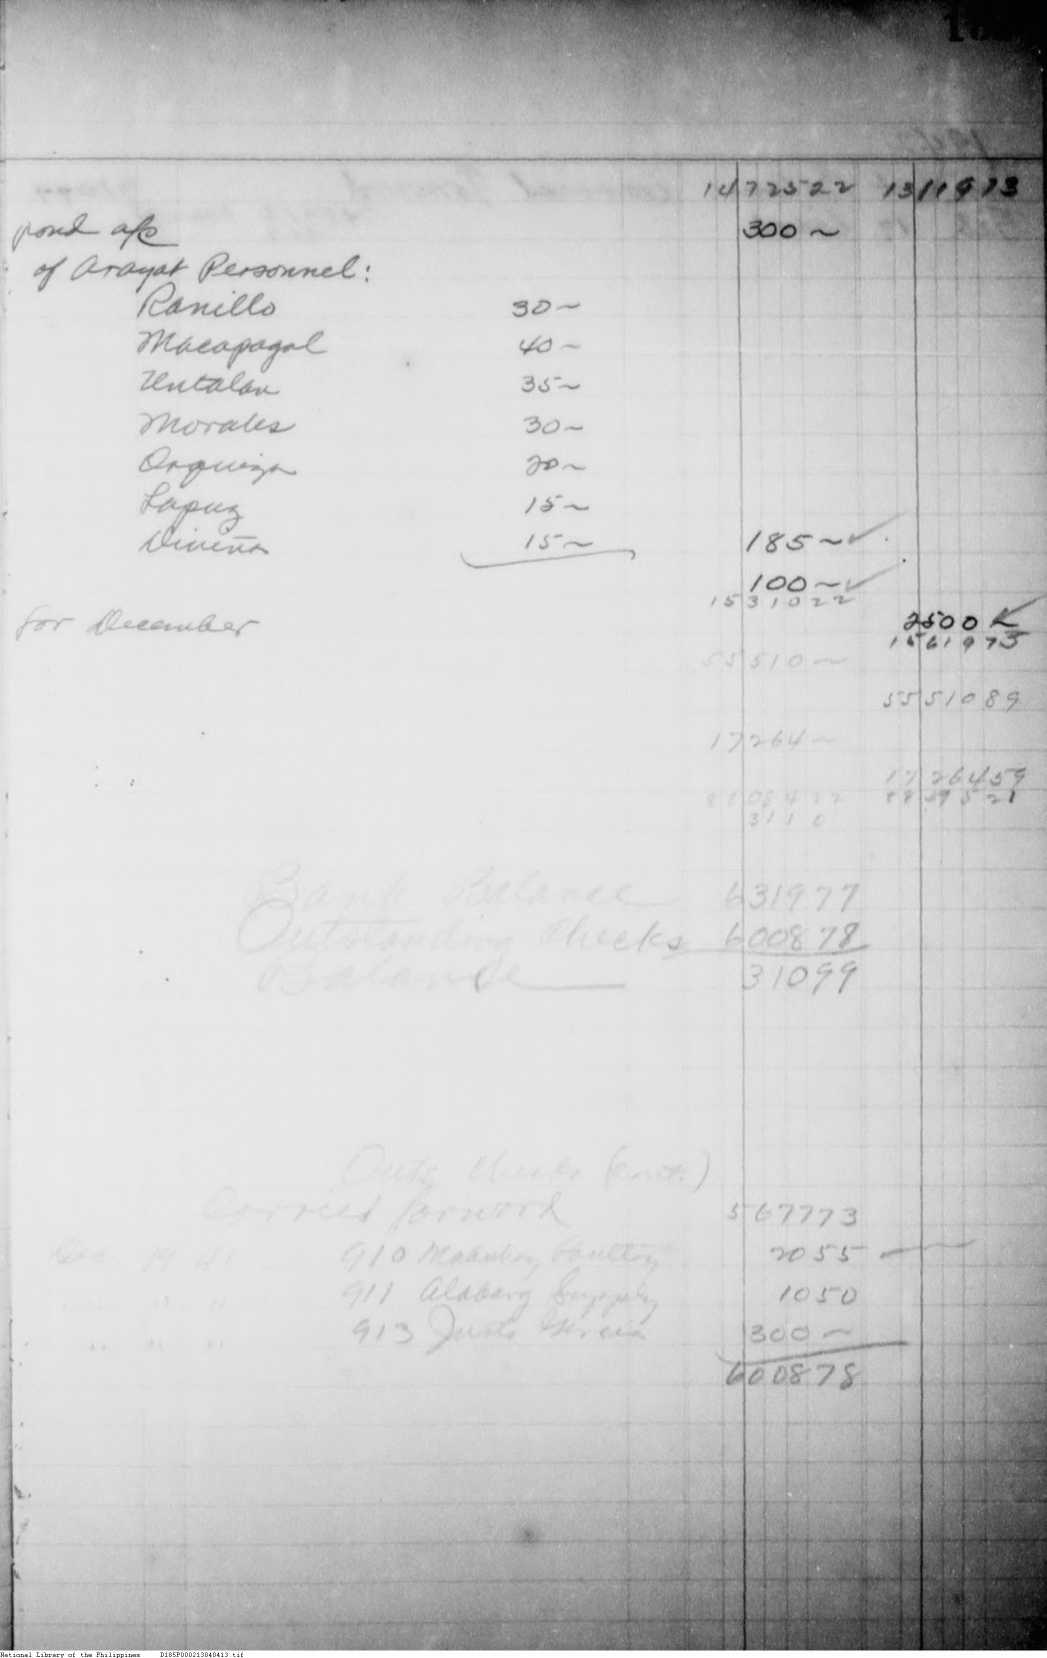 1472522 1311973
pond a/c 300 ~
of Arayat Personnel:
Ranillo 30 ~
Macapagal 40 ~
Untalan 35 ~
Morales 30 ~
Orquiza 20 ~
Lapuz 15 ~
Divina 15 ~ 185 ~
100 ~
1531022
for December 2500 ~
1561973
55510 ~
5551089
17264 ~
1726459
3110
Bank Balance 631977
Outstanding Checks 600878
Balance 31099
Outs. Checks (cont.)
Carried forward 567773
Dec. 19 41 910 2055
" " " 911 Alabang Supply 1050
" " " 913 Justo Garcia 300 ~
600878
National Library of the Philippines D185P000213040413.tif